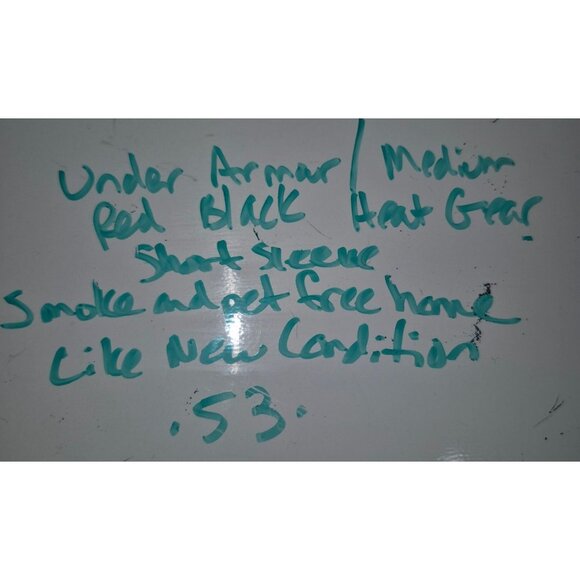 Under Armar / Medium
Red Black Heat Gear
Short Sleeve
Smoke and pet free home
Like New Condition
.53.